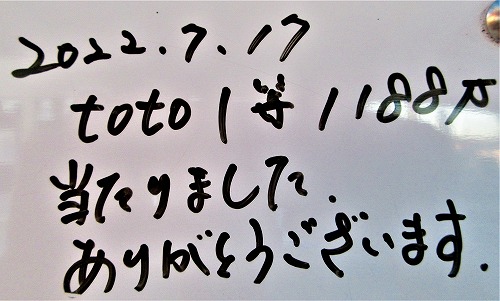 2022.7.17
toto 1等 1188万
当たりました.
ありがとうございます.